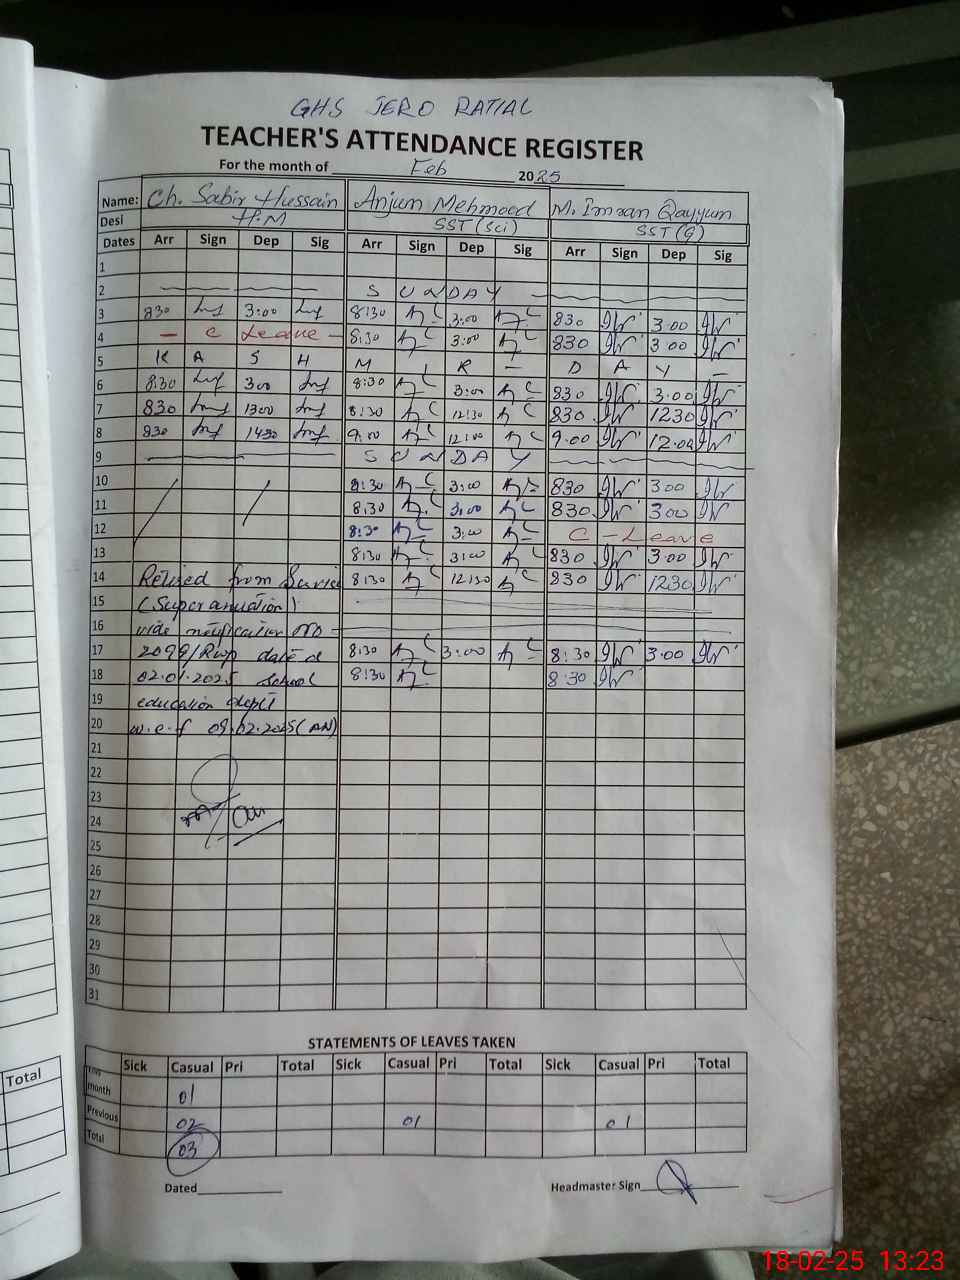 GHS JERO RATIAL
TEACHER'S ATTENDANCE REGISTER
For the month of Feb 2025
Name: Ch. Sabir Hussain Anjum Mehmood M. Imran Qayyum
Desi H.M SST (Sci) SST (G)
Dates Arr Sign Dep Sig Arr Sign Dep Sig Arr Sign Dep Sig
1
2 SUNDAY
3 830 3:00 8:30 3:00 830 3.00
4 - C Leave - 8:30 3:00 830 3 00
5 K A S H M I R - D A Y -
6 8:30 300 8:30 3:00 830 3.00
7 830 1300 8:30 12:30 830 1230
8 830 1430 9:00 12:00 9.00 12.00
9 SUNDAY
10 8:30 3:00 830 300
11 8:30 3:00 830 300
12 8:30 3:00 C - Leave
13 8:30 3:00 830 3.00
14 Retired from Service 8:30 12:30 830 1230
15 (Superanuation)
16 vide notification no
17 2099/Rwp dated 8:30 3:00 8:30 3.00
18 02.01.2025 School 8:30 8.30
19 education deptt
20 w.e.f 09.02.2025 (AN)
21
22
23
24
25
26
27
28
29
30
31
STATEMENTS OF LEAVES TAKEN
Sick Casual Pri Total Sick Casual Pri Total Sick Casual Pri Total
This month 01
Previous 02 01 01
Total 03
Dated Headmaster Sign
Total
18-02-25 13:23